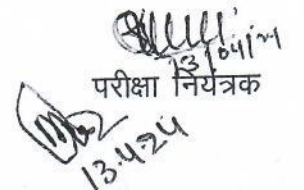 13/04/24
परीक्षा नियंत्रक
13.4.24